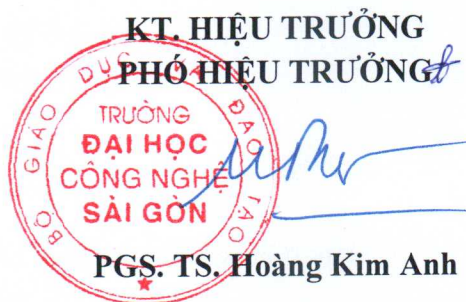 KT. HIỆU TRƯỞNG
PHÓ HIỆU TRƯỞNG
BỘ GIÁO DỤC VÀ ĐÀO TẠO
TRƯỜNG
ĐẠI HỌC
CÔNG NGHỆ
SÀI GÒN
PGS. TS. Hoàng Kim Anh